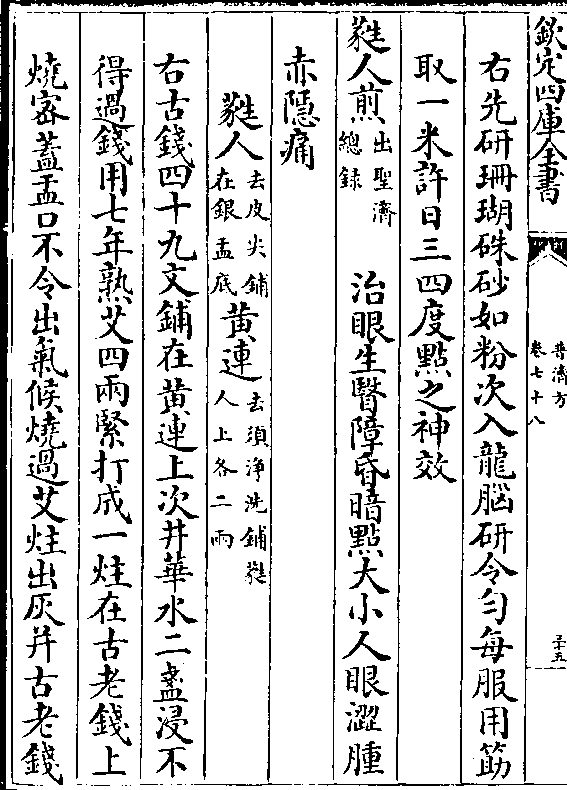 欽定四庫全書
普濟方
卷七十八
三十五
右先研珊瑚硃砂如粉次入龍腦研令勻每服用筯
取一米許日三四度點之神效
蕤人煎出聖濟總録 治眼生瞖障昏暗點大小人眼澀腫
赤隠痛
蕤人去皮尖鋪在銀盂底 黄連去須浄洗鋪蕤人上各二兩
右古錢四十九文鋪在黄連上次井華水二盞浸不
得過錢用七年熟艾四兩緊打成一炷在古老錢上
燒宻蓋盂口不令出氣候燒過艾炷出灰并古老錢